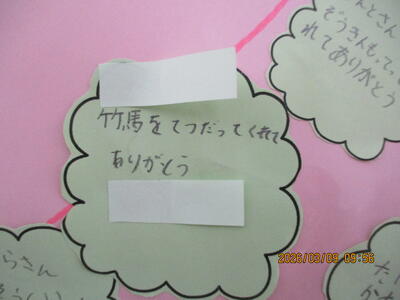 竹馬をてつだってくれて
ありがとう
んとさん
ぞうきんもってっ
れてありがとう
らさん
2026/03/09 09:36